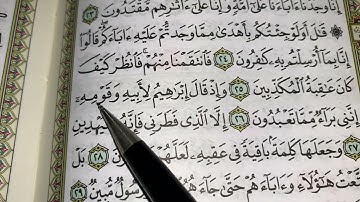 إِنَّا وَجَدْنَا ءَابَآءَنَا عَلَىٰٓ أُمَّةٍ وَإِنَّا عَلَىٰٓ ءَاثَٰرِهِم مُّقْتَدُونَ ٢٣
قَٰلَ أَوَلَوْ جِئْتُكُم بِأَهْدَىٰ مِمَّا وَجَدتُّمْ عَلَيْهِ ءَابَآءَكُمْ قَالُوٓا۟
إِنَّا بِمَآ أُرْسِلْتُم بِهِۦ كَٰفِرُونَ ٢٤ فَٱنتَقَمْنَا مِنْهُمْ فَٱنظُرْ كَيْفَ
كَانَ عَٰقِبَةُ ٱلْمُكَذِّبِينَ ٢٥ وَإِذْ قَالَ إِبْرَٰهِيمُ لِأَبِيهِ وَقَوْمِهِۦٓ
إِنَّنِى بَرَآءٌ مِّمَّا تَعْبُدُونَ ٢٦ إِلَّا ٱلَّذِى فَطَرَنِى فَإِنَّهُۥ سَيَهْدِينِ
٢٧ وَجَعَلَهَا كَلِمَةًۢ بَاقِيَةً فِى عَقِبِهِۦ لَعَلَّهُمْ ٢٨ بَلْ
مَتَّعْتُ هَٰٓؤُلَآءِ وَءَابَآءَهُمْ حَتَّىٰ جَآءَهُمُ وَرَسُولٌ مُّبِينٌ ٢٩